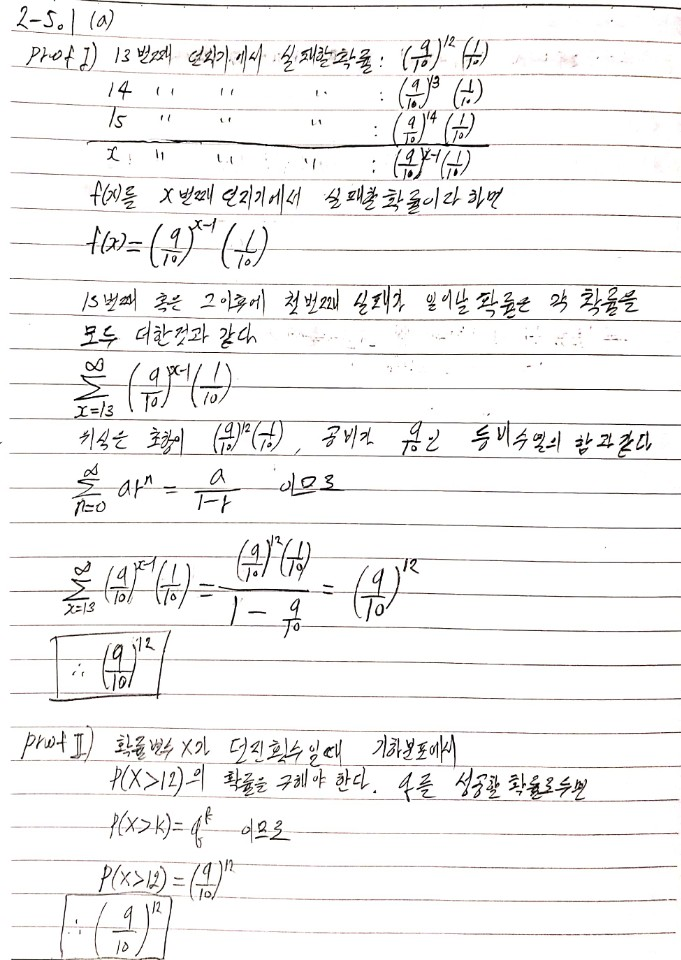 2-5.1 (a)
proof I) 13번째 던지기에서 실패할 확률 : (9/10)^12 (1/10)
14 〃 〃 〃 : (9/10)^13 (1/10)
15 〃 〃 〃 : (9/10)^14 (1/10)
x 〃 〃 〃 : (9/10)^x-1 (1/10)
f(x)를 x번째 던지기에서 실패할 확률이라 하면
f(x) = (9/10)^x-1 (1/10)
13번째 혹은 그 이후에 첫번째 실패가 일어날 확률은 각 확률을
모두 더한것과 같다
∑_{x=13}^{∞} (9/10)^x-1 (1/10)
위식은 초항이 (9/10)^12 (1/10), 공비가 9/10인 등비수열의 합과 같다
∑_{n=0}^{∞} ar^n = a/(1-r) 이므로
∑_{x=13}^{∞} (9/10)^x-1 (1/10) = ((9/10)^12 (1/10))/(1 - 9/10) = (9/10)^12
∴ (9/10)^12
proof II) 확률변수 X가 던진횟수일때 기하분포에서
P(X>12)의 확률을 구해야 한다. q를 성공할 확률로두면
P(X>k) = q^k 이므로
P(X>12) = (9/10)^12
∴ (9/10)^12